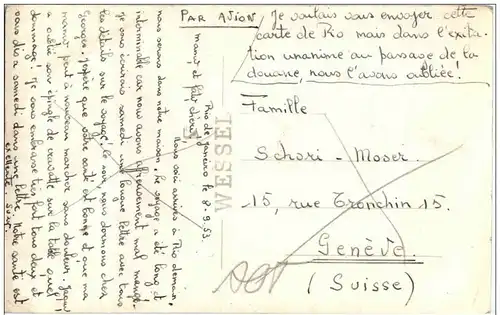 PAR AVION
Je voulais vous envoyer cette
carte de Rio mais dans l'exita-
tion unanime au passage de la
douane, nous l'avons oubliée!
Famille
Schori-Moser
15, rue Tronchin 15.
Genève
(Suisse)
WESSEL
Rio de Janeiro le 8.9.53
mamy et
Nous voici arrivés à Rio demain,
nous serons dans notre maison. Le voyage a été long et
interminable car nous avons affreusement mal mangé.
Je vous écrirais samedi une longue lettre avec tous
les détails sur le voyage! Ce soir, nous dormons chez
Georges. J'espère que votre santé est bonne et que ma
mamy peut à nouveau marcher sans douleur. Jaquy
a oublié son épingle de cravatte sur la table quel
dommage! Je vous embrasse très fort tous deux et
vous dis à samedi dans une lettre. Notre santé est
excellente.